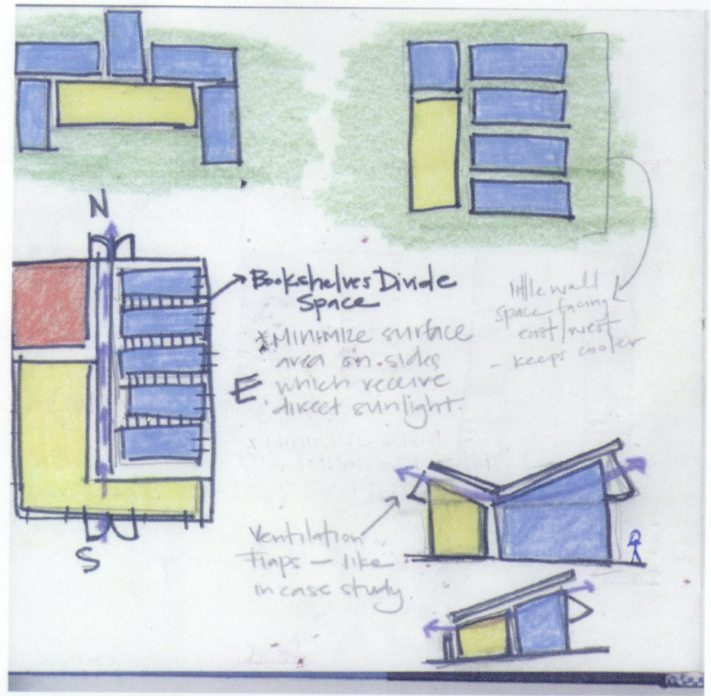 N
Bookshelves Divide
Space
* Minimize surface
area on sides
E which receive
direct sunlight.
little wall
space facing
east/west
- keeps cooler
Ventilation
flaps - like
in case study
S